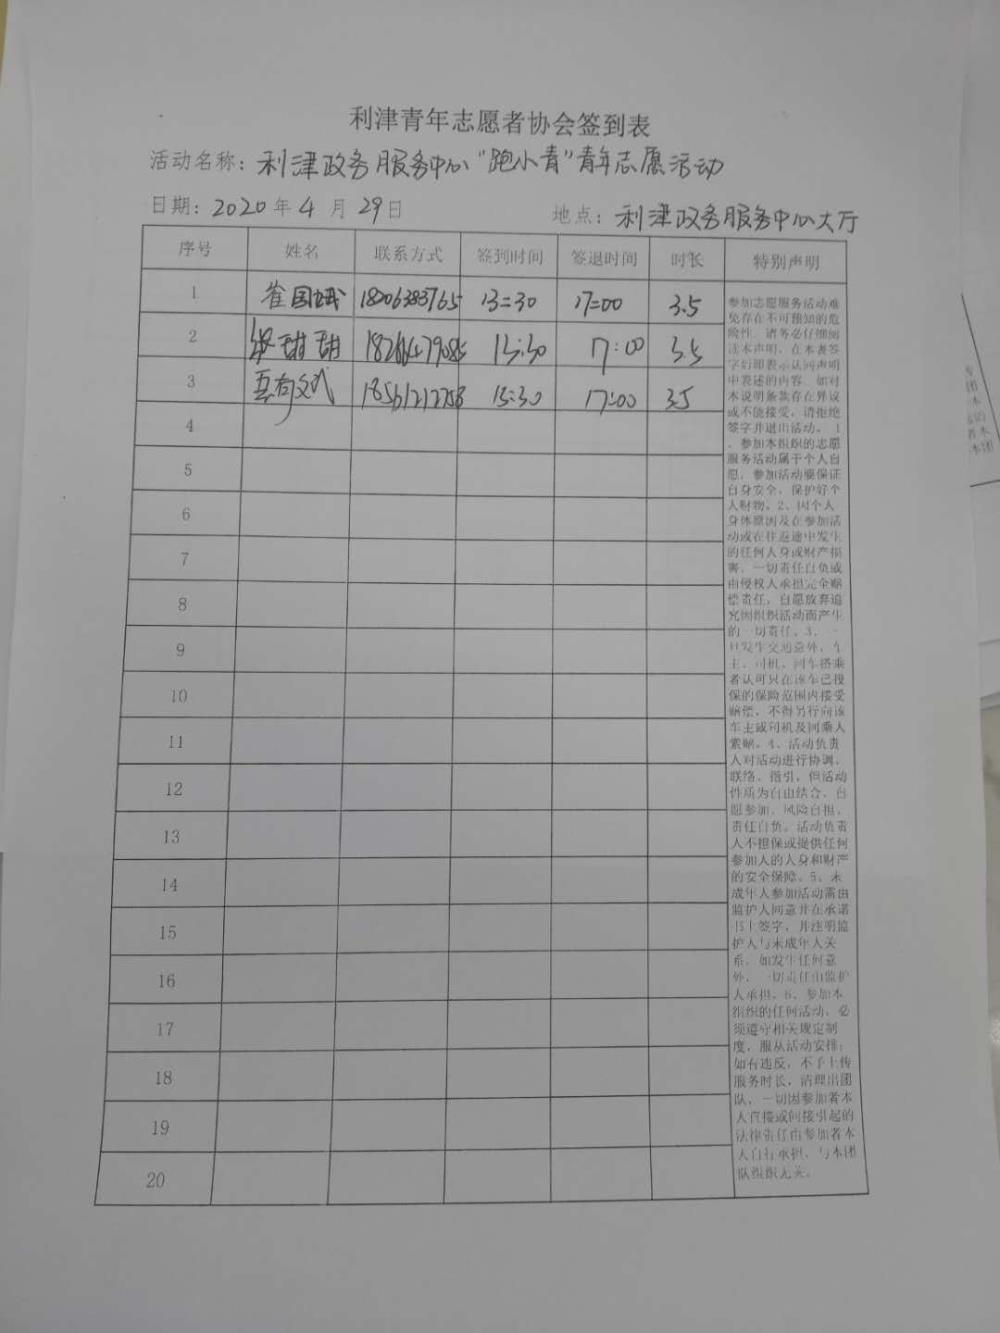 利津青年志愿者协会签到表
活动名称：利津政务服务中心“跑小青”青年志愿活动
日期：2020年4月29日 地点：利津政务服务中心大厅
序号 姓名 联系方式 签到时间 签退时间 时长 特别声明
1 13:30 17:00 3.5
2 甜甜 13:30 17:00 3.5
3 18561212758 13:30 17:00 3.5
4
5
6
7
8
9
10
11
12
13
14
15
16
17
18
19
20
参加志愿服务活动难
免存在不可预知的危
险性，请务必仔细阅
读本声明，在本表签
字后即表示认同声明
中表述的内容，如对
本说明条款存在异议
或不能接受，请拒绝
签字并退出活动。1
、参加本组织的志愿
服务活动属于个人自
愿，参加活动要保证
自身安全，保护好个
人财物。2、因个人
身体原因及在参加活
动或在往返途中发生
的任何人身或财产损
害，一切责任自负或
由侵权人承担完全赔
偿责任，自愿放弃追
究因组织活动而产生
的一切责任。3、一
旦发生交通意外，车
主、司机、同车搭乘
者认可只在该车已投
保的保险范围内接受
赔偿，不得另行向该
车主或司机及同乘人
索赔。4、活动负责
人对活动进行协调、
联络、指引，但活动
性质为自由结合、自
愿参加、风险自担、
责任自负。活动负责
人不担保或提供任何
参加人的人身和财产
的安全保障。5、未
成年人参加活动需由
监护人同意并在承诺
书上签字，并注明监
护人与未成年人关
系，如发生任何意
外，一切责任由监护
人承担。6、参加本
组织的任何活动，必
须遵守相关规定制
度，服从活动安排；
如有违反，不予上传
服务时长，清理出团
队，一切因参加者本
人直接或间接引起的
法律责任由参加者本
人自行承担，与本团
队组织无关。